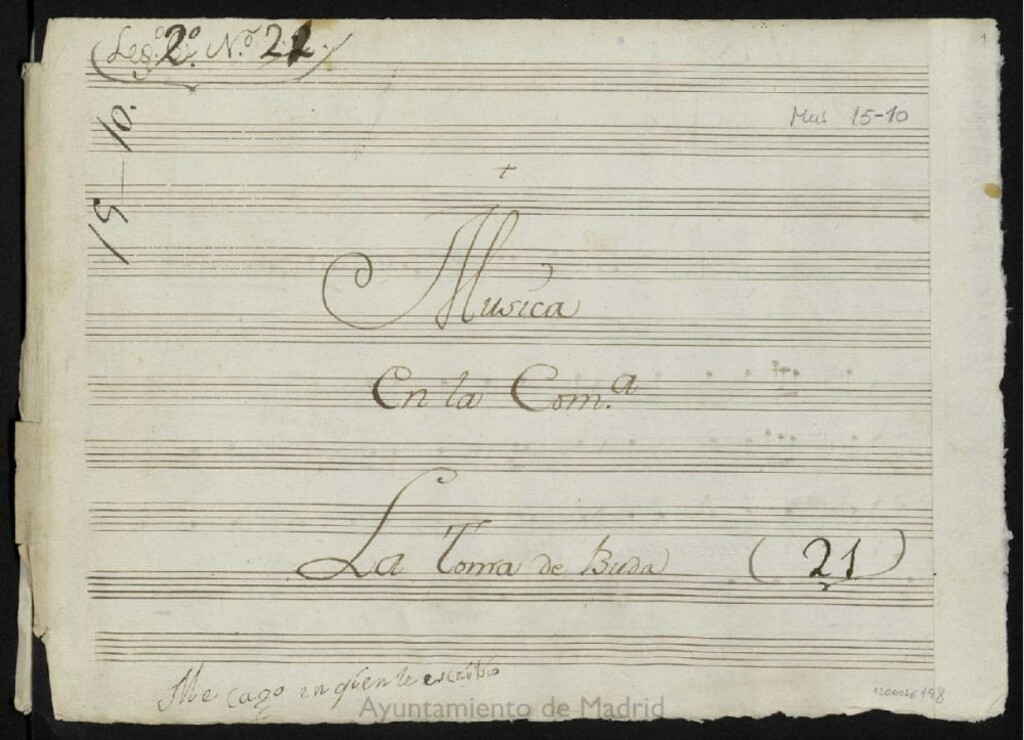 Leg.º 2.º N.º 21.
1
Mus 15-10
15-10.
+
Musica
En la Com.a
La Toma de Buda (21)
Me cago en qien le escribio
1200026198
Ayuntamiento de Madrid